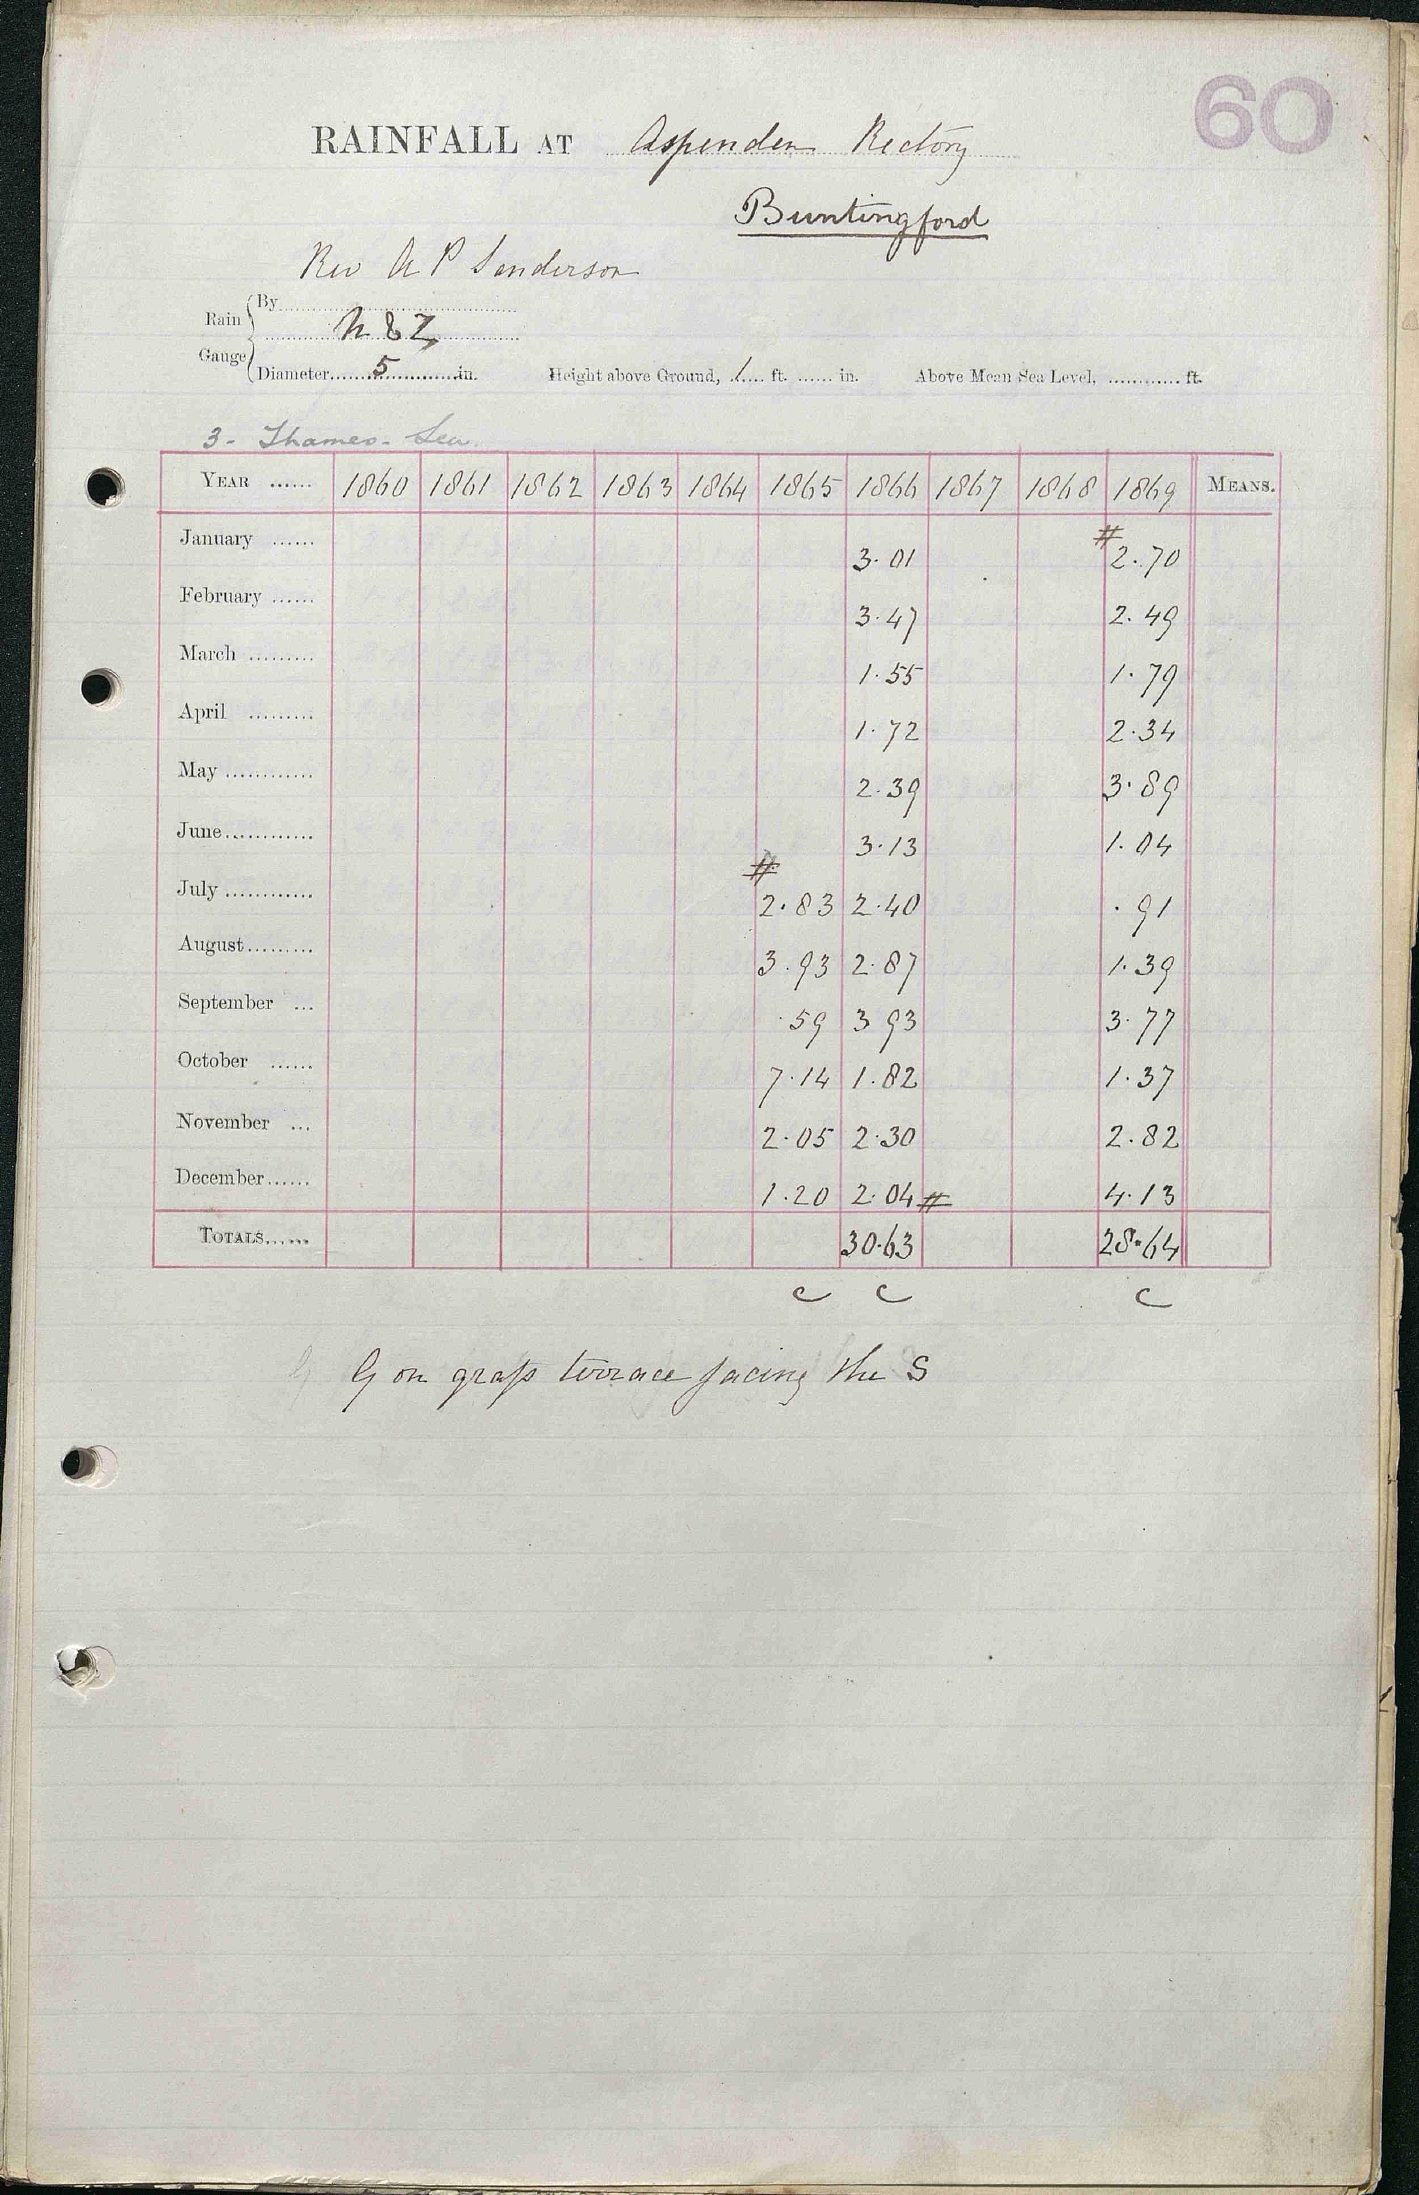 60
RAINFALL AT Aspenden Rectory
Buntingford
Rev A P Sanderson
Rain Gauge { By
N & Z
Diameter 5 in. Height above Ground, 1 ft. ...... in. Above Mean Sea Level, ............ ft.
3 - Thames - Lea.
YEAR ...... 1860 1861 1862 1863 1864 1865 1866 1867 1868 1869 MEANS.
January ...... 3.01 # 2.70
February ...... 3.47 2.49
March ......... 1.55 1.79
April ......... 1.72 2.34
May ............ 2.39 3.89
June ............ 3.13 1.04
July ............ # 2.83 2.40 .91
August ......... 3.93 2.87 1.39
September ... .59 3 93 3.77
October ...... 7.14 1.82 1.37
November ... 2.05 2.30 2.82
December ...... 1.20 2.04 # 4.13
TOTALS ...... 30.63 28.64
c c c
G on grass terrace facing the S